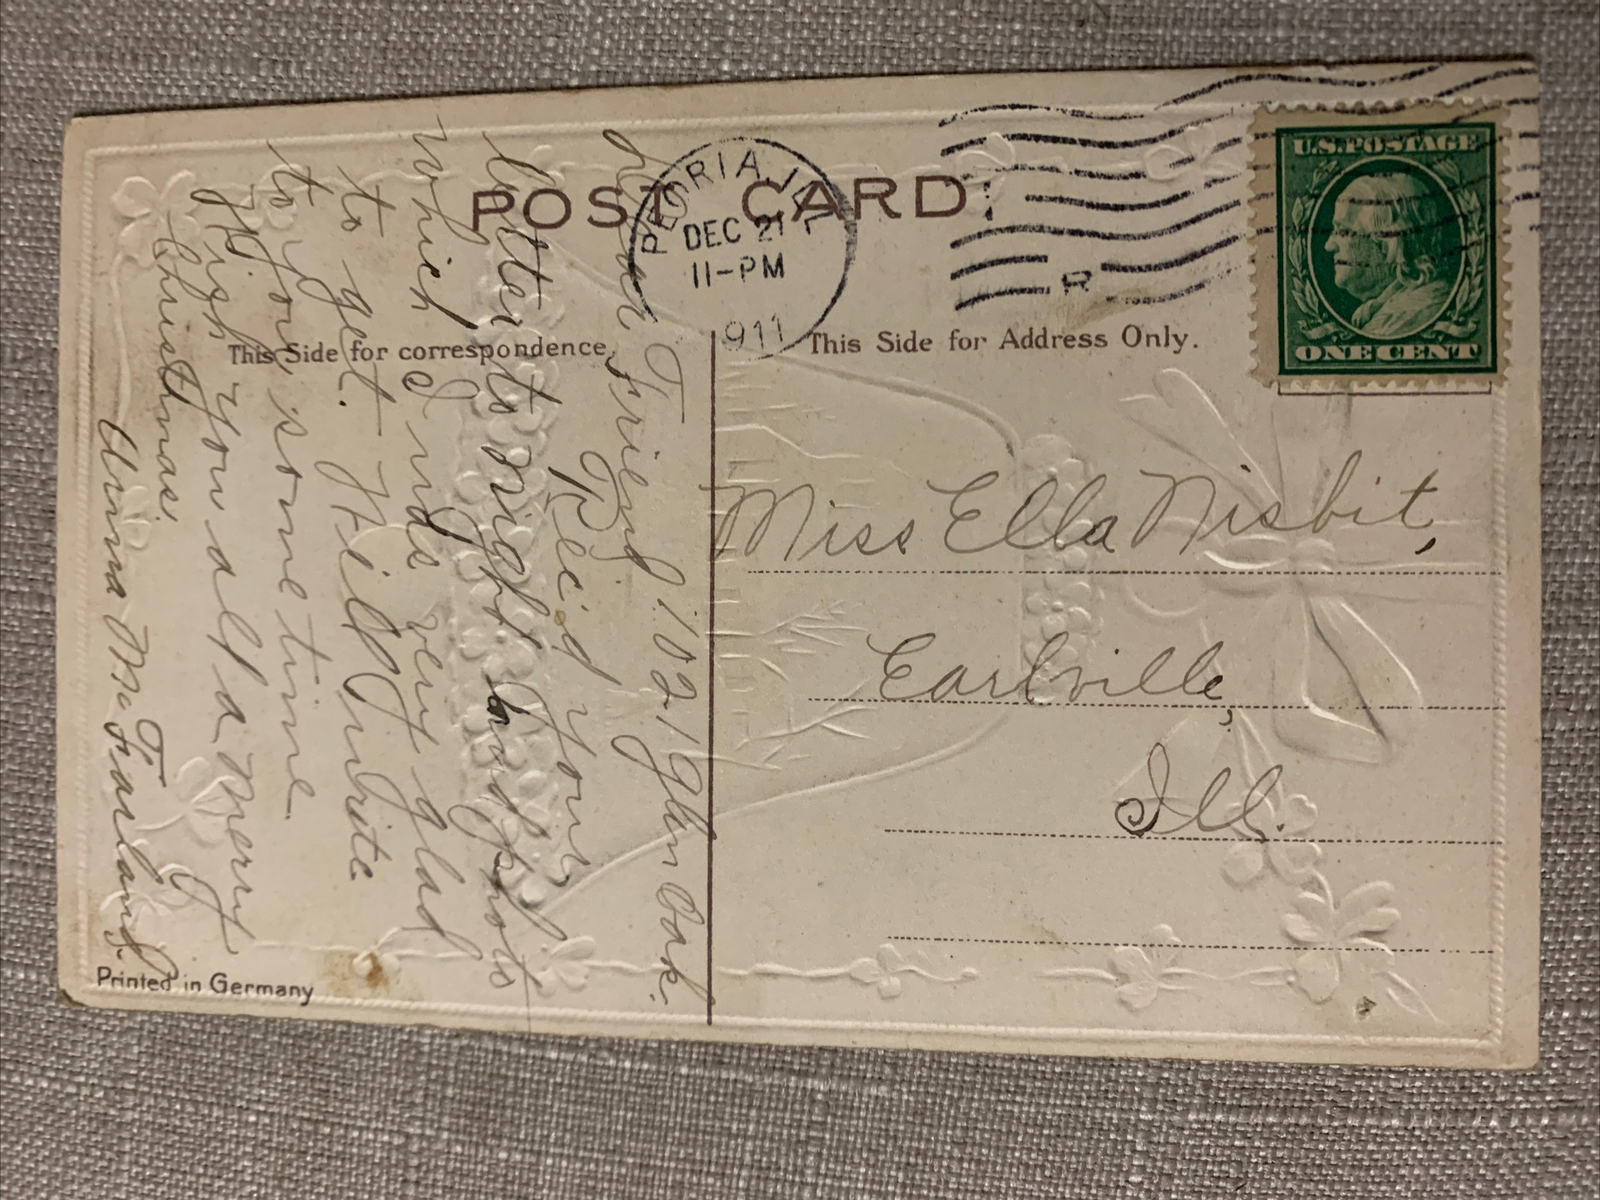 POST CARD.
PEORIA, ILL.
DEC 21
11-PM
1911
R
U.S. POSTAGE
ONE CENT
This Side for correspondence.
This Side for Address Only.
Miss Ella Nisbit,
Earlville,
Ill.
Dear Friend. 1021 Glen Oak.
Rec'd your
letter to night and photo
which I was very glad
to get. Will write
to you some time
Wish you all a merry
Christmas.
Anna McFarland.
Printed in Germany